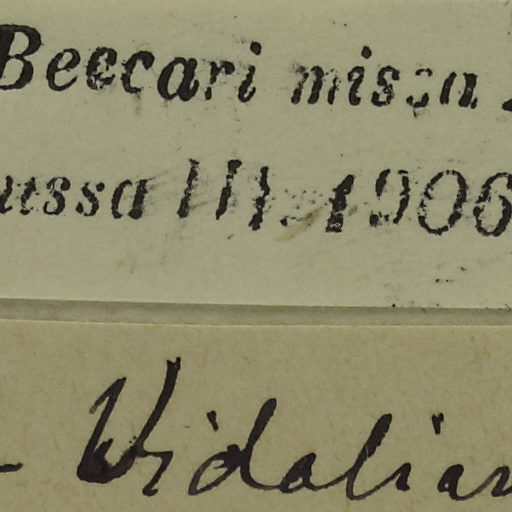 Beccari missa
ussa III. 1906
- Vidalian